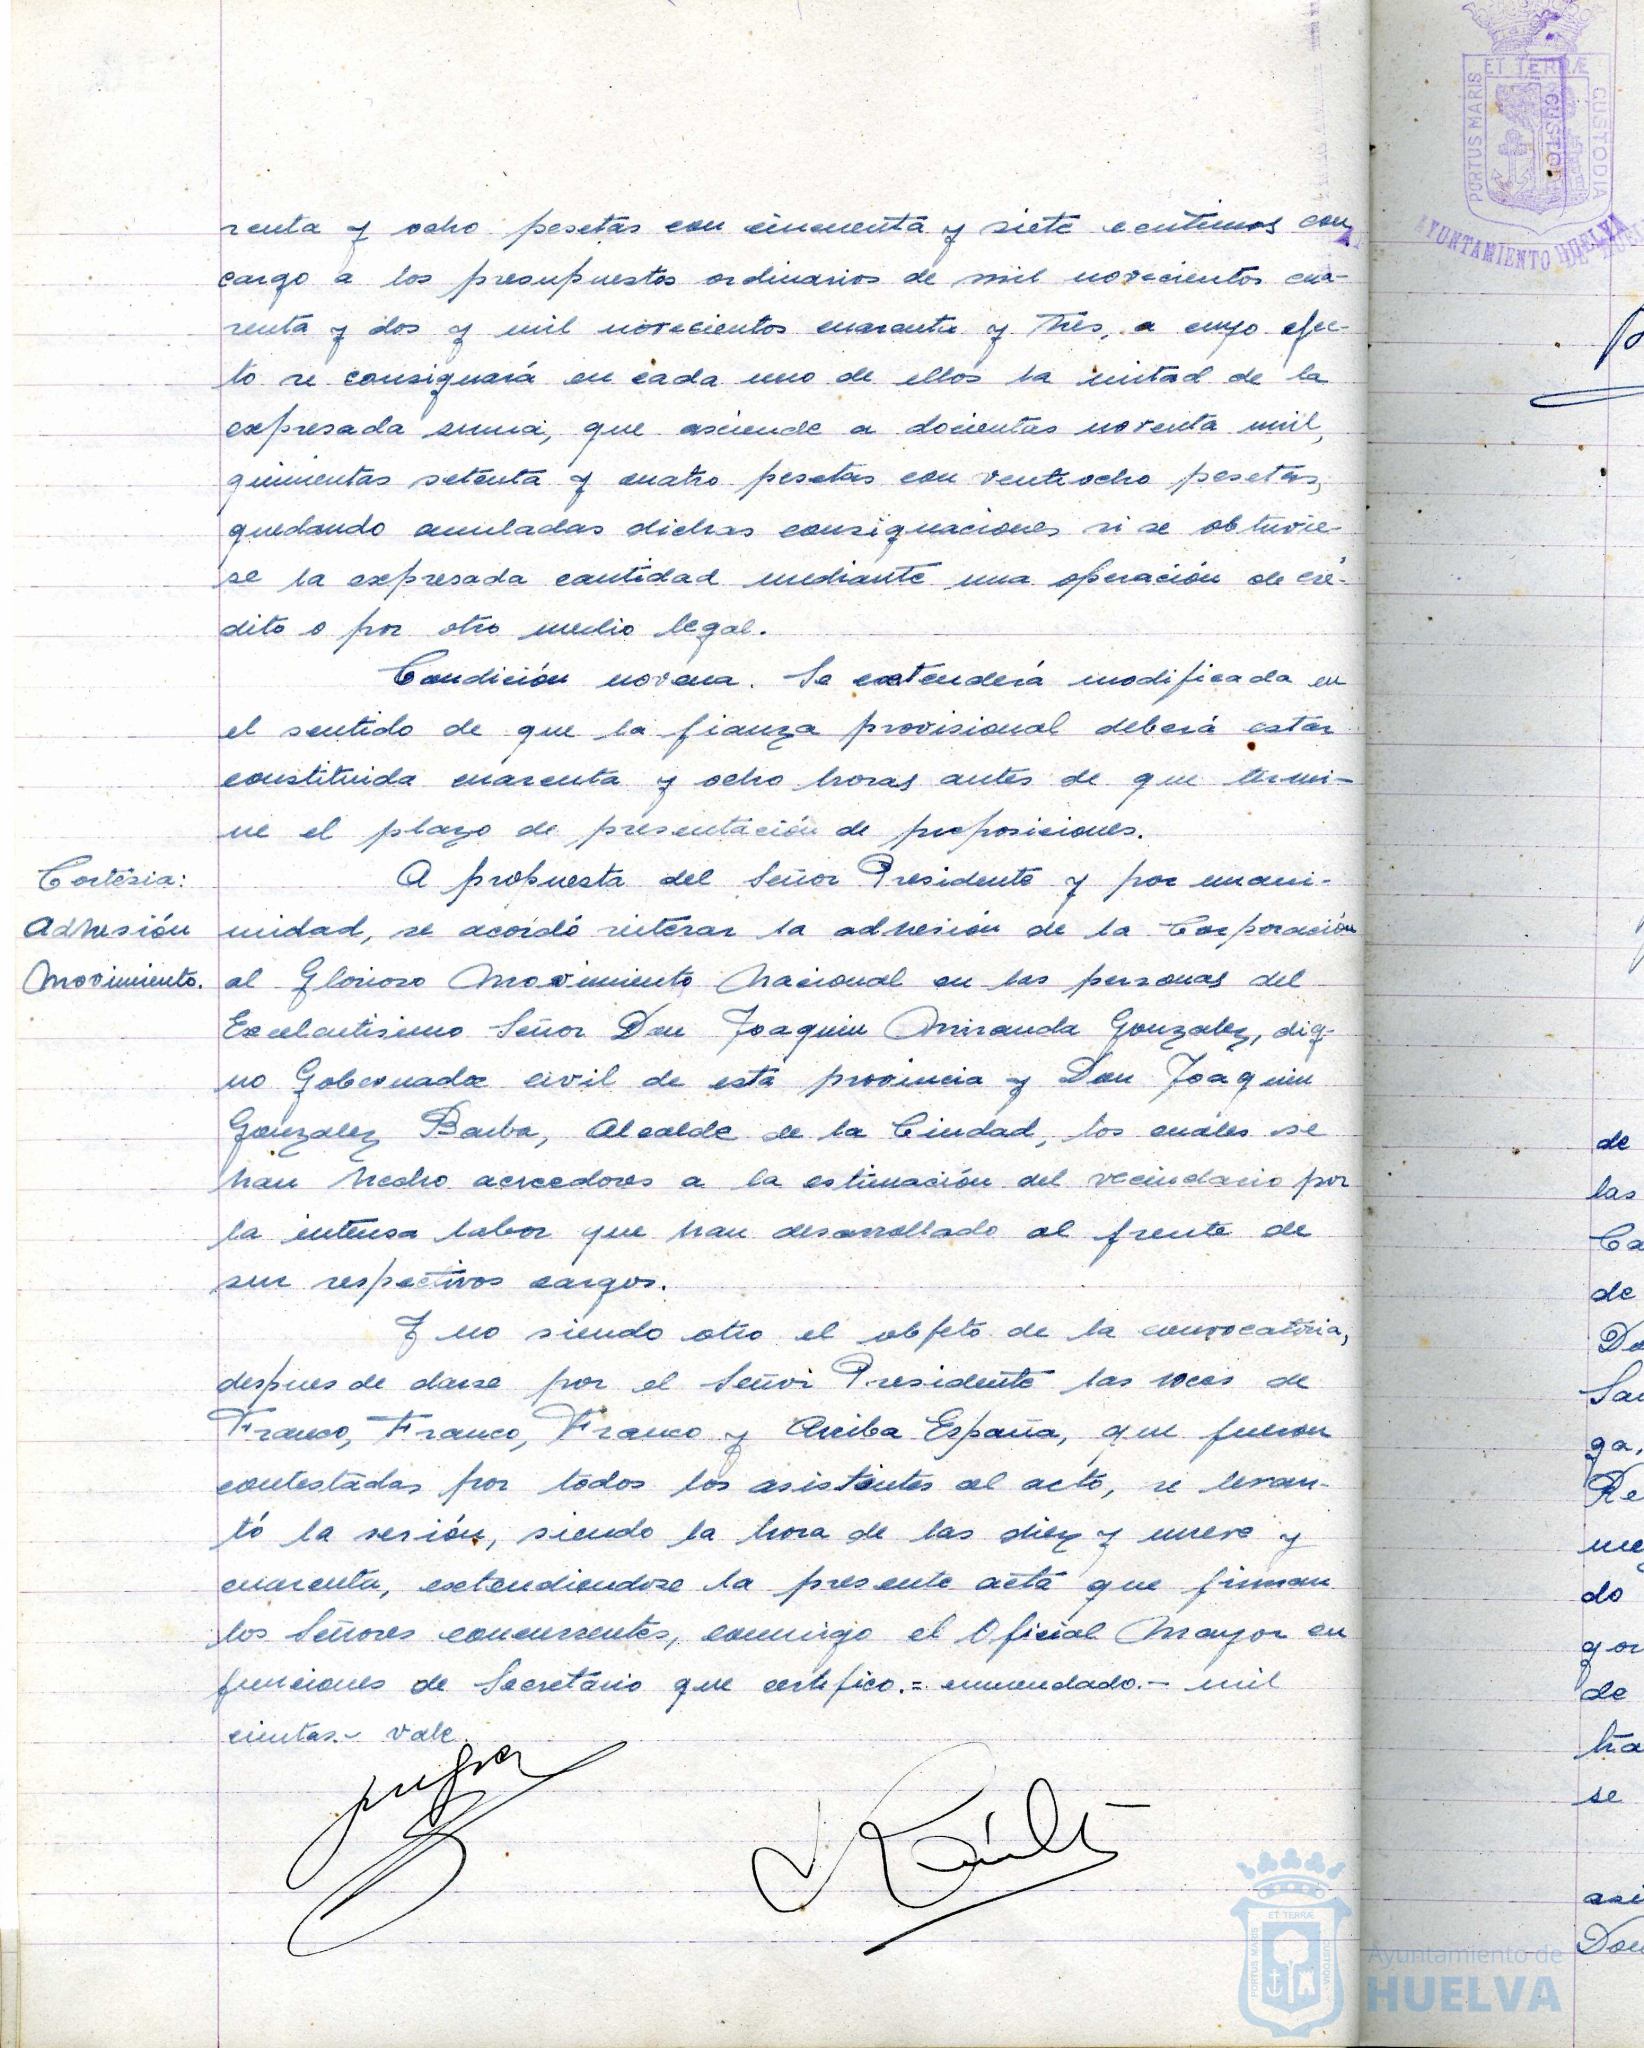 renta y ocho pesetas con cincuenta y siete centimos con
cargo a los presupuestos ordinarios de mil novecientos cua-
renta y dos y mil novecientos cuarenta y tres, a cuyo efec-
to se consignará en cada uno de ellos la mitad de la
expresada suma, que asciende a docientas noventa mil,
quinientas setenta y cuatro pesetas con ventiocho pesetas,
quedando anuladas dichas consignaciones si se obtuvie-
se la expresada cantidad mediante una operación de cré-
dito o por otro medio legal.
Condición novena. Se extenderá modificada en
el sentido de que la fianza provisional deberá estar
constituida cuarenta y ocho horas antes de que termi-
ne el plazo de presentación de proposiciones.
Cortesia:
Adhesión
Movimiento.
A propuesta del Señor Presidente y por unani-
midad, se acordó reiterar la adhesión de la Corporación
al Glorioso Movimiento Nacional en las personas del
Excelentisimo Señor Don Joaquin Miranda Gonzalez, dig-
no Gobernador civil de esta provincia y Don Joaquin
Gonzalez Barba, Alcalde de la Ciudad, los cuáles se
han hecho acreedores a la estimación del vecindario por
la intensa labor que han desarrollado al frente de
sus respectivos cargos.
Y no siendo otro el objeto de la convocatoria,
despues de darse por el Señor Presidente las voces de
Franco, Franco, Franco y Arriba España, que fueron
contestadas por todos los asistentes al acto, se levan-
tó la sesión, siendo la hora de las diez y nueve y
cuarenta, extendiendose la presente acta que firman
los Señores concurrentes, conmigo el Oficial Mayor en
funciones de Secretario que certifico.= enmendado.- mil
cientas.- vale.
PORTUS MARIS ET TERRÆ CUSTODIA
AYUNTAMIENTO DE HUELVA
de
las
Ca
de
Do
San
ga,
Re
me
do
gor
de
tra
se
asi
Don
PORTUS MARIS ET TERRÆ CUSTODIA
Ayuntamiento de
HUELVA